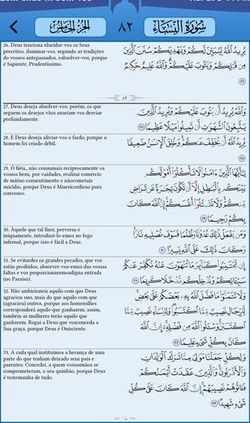 الجزء الخامس
٨٢
سورة النساء
26. Deus tenciona elucidar-vos os Seus
preceitos, iluminar-vos, segundo as tradições
do vossos antepassados, eabsolver-vos, porque
é Sapiente, Prudentíssimo.
يُرِيدُ ٱللَّهُ لِيُبَيِّنَ لَكُمْ وَيَهْدِيَكُمْ سُنَنَ ٱلَّذِينَ
مِن قَبْلِكُمْ وَيَتُوبَ عَلَيْكُمْ وَٱللَّهُ عَلِيمٌ حَكِيمٌ
٨٣
27. Deus deseja absolver-vos; porém, os que
seguem os desejos vãos anseiam vos desviar
profundamente.
وَٱللَّهُ يُرِيدُ أَن يَتُوبَ عَلَيْكُمْ وَيُرِيدُ ٱلَّذِينَ
يَتَّبِعُونَ ٱلشَّهَوَٰتِ أَن تَمِيلُوا۟ مَيْلًا عَظِيمًا ﴿٢٧﴾
28. E Deus deseja aliviar-vos o fardo, porque o
homem foi criado débil.
يُرِيدُ ٱللَّهُ أَن يُخَفِّفَ عَنكُمْ وَخُلِقَ ٱلْإِنسَٰنُ ضَعِيفًا
﴿٢٨﴾
29. Ó fiéis, não consumais reciprocamente os
vossos bens, por vaidades, realizai comércio
de mútuo consentimento e nãocometais
suicídio, porque Deus é Misericordioso para
convosco.
يَٰٓأَيُّهَا ٱلَّذِينَ ءَامَنُوا۟ لَا تَأْكُلُوٓا۟ أَمْوَٰلَكُم
بَيْنَكُم بِٱلْبَٰطِلِ إِلَّآ أَن تَكُونَ تِجَٰرَةً عَن تَرَاضٍ
مِّنكُمْ وَلَا تَقْتُلُوٓا۟ أَنفُسَكُمْ إِنَّ ٱللَّهَ كَانَ
بِكُمْ رَحِيمًا ﴿٢٩﴾
30. Àquele que tal fizer, perversa e
iniquamente, introduzi-lo-emos no fogo
infernal, porque isso é fácil a Deus.
وَمَن يَفْعَلْ ذَٰلِكَ عُدْوَٰنًا وَظُلْمًا فَسَوْفَ نُصْلِيهِ نَارًا
وَكَانَ ذَٰلِكَ عَلَى ٱللَّهِ يَسِيرًا ﴿٣٠﴾
31. Se evitardes os grandes pecados, que vos
estão proibidos, absolver-vos-emos das vossas
faltas e vos proporcionaremosdigna entrada
(no Paraíso).
إِن تَجْتَنِبُوا۟ كَبَآئِرَ مَا تُنْهَوْنَ عَنْهُ نُكَفِّرْ عَنكُمْ
سَيِّـَٔاتِكُمْ وَنُدْخِلْكُم مُّدْخَلًا كَرِيمًا ﴿٣١﴾
32. Não ambicioneis aquilo com que Deus
agraciou uns, mais do que aquilo com que
(agraciou) outros, porque aos homenslhes
corresponderá aquilo que ganharem; assim,
também as mulheres terão aquilo que
ganharem. Rogai a Deus que vosconceda a
Sua graça, porque Deus é Onisciente.
وَلَا تَتَمَنَّوْا۟ مَا فَضَّلَ ٱللَّهُ بِهِۦ بَعْضَكُمْ عَلَىٰ بَعْضٍ
لِّلرِّجَالِ نَصِيبٌ مِّمَّا ٱكْتَسَبُوا۟ وَلِلنِّسَآءِ نَصِيبٌ مِّمَّا
ٱكْتَسَبْنَ وَسْـَٔلُوا۟ ٱللَّهَ مِن فَضْلِهِۦٓ إِنَّ ٱللَّهَ كَانَ
بِكُلِّ شَىْءٍ عَلِيمًا ﴿٣٢﴾
33. A cada qual instituímos a herança de uma
parte do que tenham deixado seus pais e
parentes. Concedei, a quem vossasmãos se
comprometeram, o seu quinhão, porque Deus
é testemunha de tudo.
وَلِكُلٍّ جَعَلْنَا مَوَٰلِىَ مِمَّا تَرَكَ ٱلْوَٰلِدَانِ
وَٱلْأَقْرَبُونَ وَٱلَّذِينَ عَقَدَتْ أَيْمَٰنُكُمْ
فَـَٔاتُوهُمْ نَصِيبَهُمْ إِنَّ ٱللَّهَ كَانَ عَلَىٰ كُلِّ
شَىْءٍ شَهِيدًا ﴿٣٣﴾